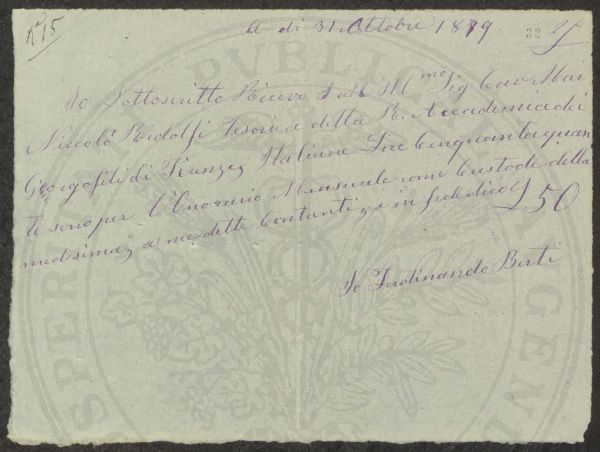 N° 15
A di 31 Ottobre 1879
32
Io Sottoscritto Ricevo dall Ill.mo Sig Cav Mar
Niccolò Ridolfi Tesoriere della R. Accademia dei
Georgofili di Firenze Italiane Lire Cinquanta quan
te sono per l'Onorario Mensuale come Custode della
medesima, a me dette Contanti, e in fede dico £ 50
Io Ferdinando Berti
PVBLICAE
PROSPERITATI AVGENDAE